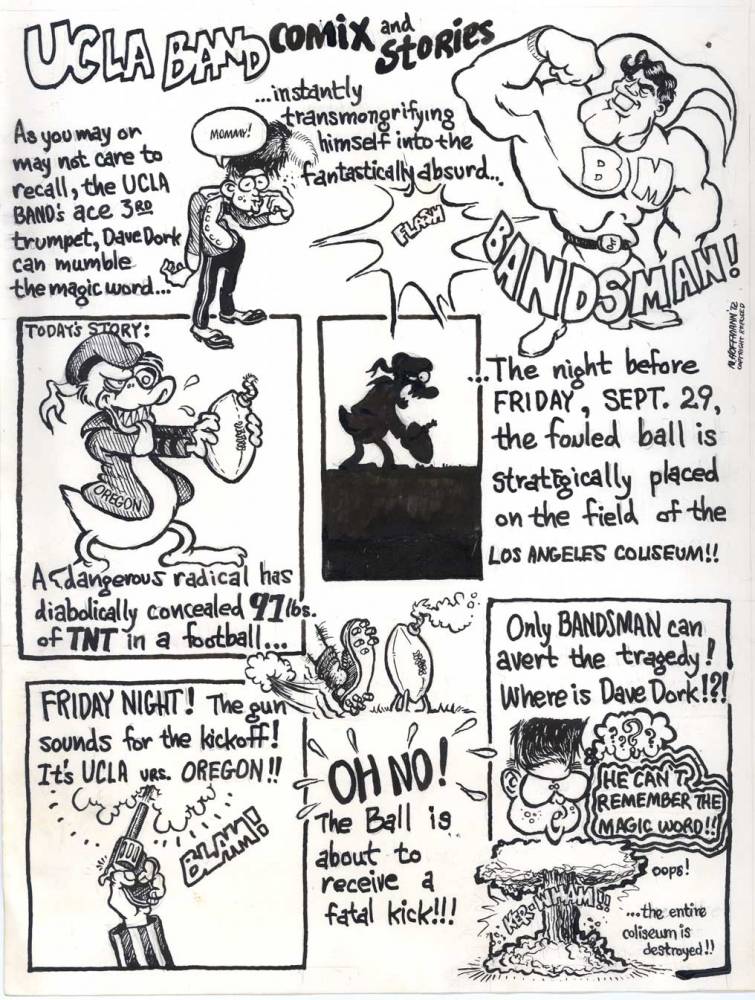 UCLA BAND COMIX and STORIES
As you may or
may not care to
recall, the UCLA
BAND's ace 3RD
trumpet, Dave Dork
can mumble
the magic word...
MOMMY!
...instantly
transmongrifying
himself into the
fantastically absurd...
FLASH
BM
BANDSMAN!
M. HOFFMANN '72
COPYRIGHT REFUSED
TODAY'S STORY:
OREGON
A dangerous radical has
diabolically concealed 97 lbs.
of TNT in a football...
...The night before
FRIDAY, SEPT. 29,
the fouled ball is
strategically placed
on the field of the
LOS ANGELES COLISEUM!!
FRIDAY NIGHT! The gun
sounds for the kickoff!
It's UCLA vrs. OREGON!!
BLAM!
OH NO!
The Ball is
about to
receive a
fatal kick!!!
Only BANDSMAN can
avert the tragedy!
Where is Dave Dork!?!
? ? ?
HE CAN'T
REMEMBER THE
MAGIC WORD!!
KERWHAM!!
oops!
...the entire
coliseum is
destroyed!!